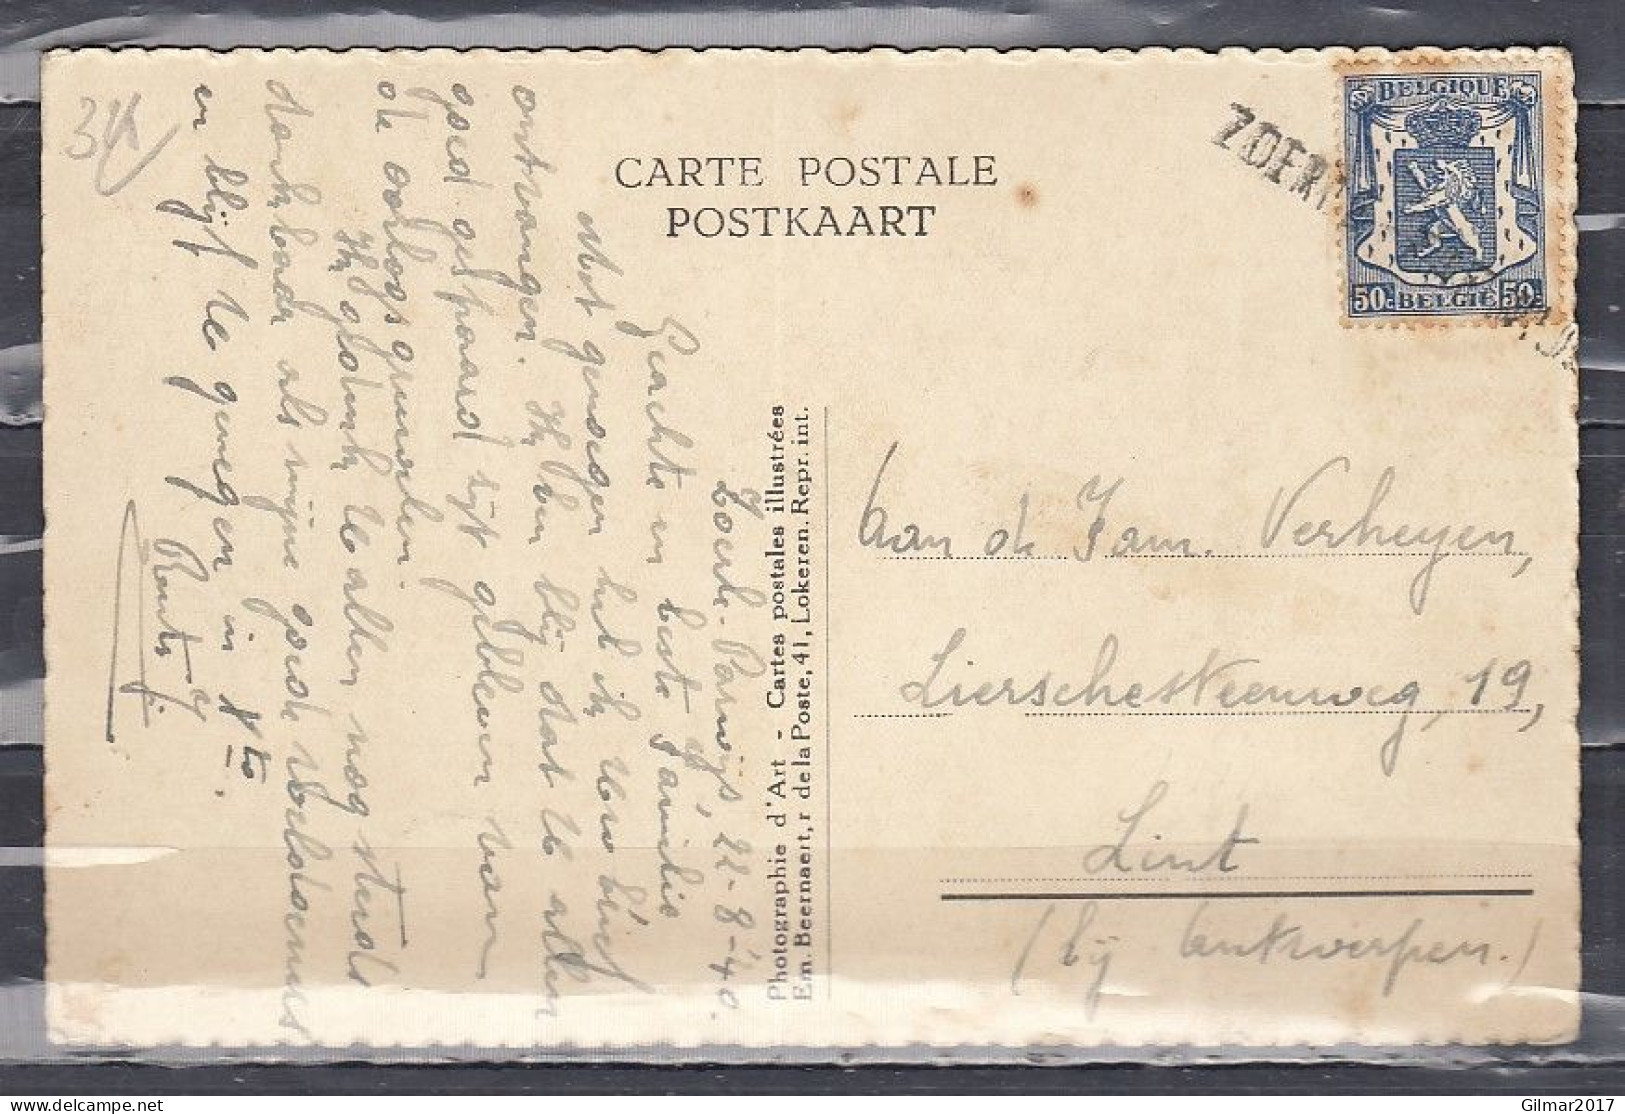 34
CARTE POSTALE
POSTKAART
BELGIQUE
50c BELGIË 50c
ZOER
Zoerle-Parwijs, 22-8-'40.
Geachte en beste Familie
Met genoegen heb ik Uw brief
ontvangen. Ik ben blij dat U allen
goed gespaard zijt gebleven van
de oorlogsgruwelen.
Ik gedenk U allen nog steeds
dankbaar als mijne goede weldoeners
en blijf U genegen in Xto.
Photographie d'Art - Cartes postales illustrées
Em. Beernaert, r de la Poste, 41, Lokeren. Repr. int.
Aan de Fam. Verheyen,
Lierschesteenweg, 19,
Lint
(bij Antwerpen.)
Gilmar2017